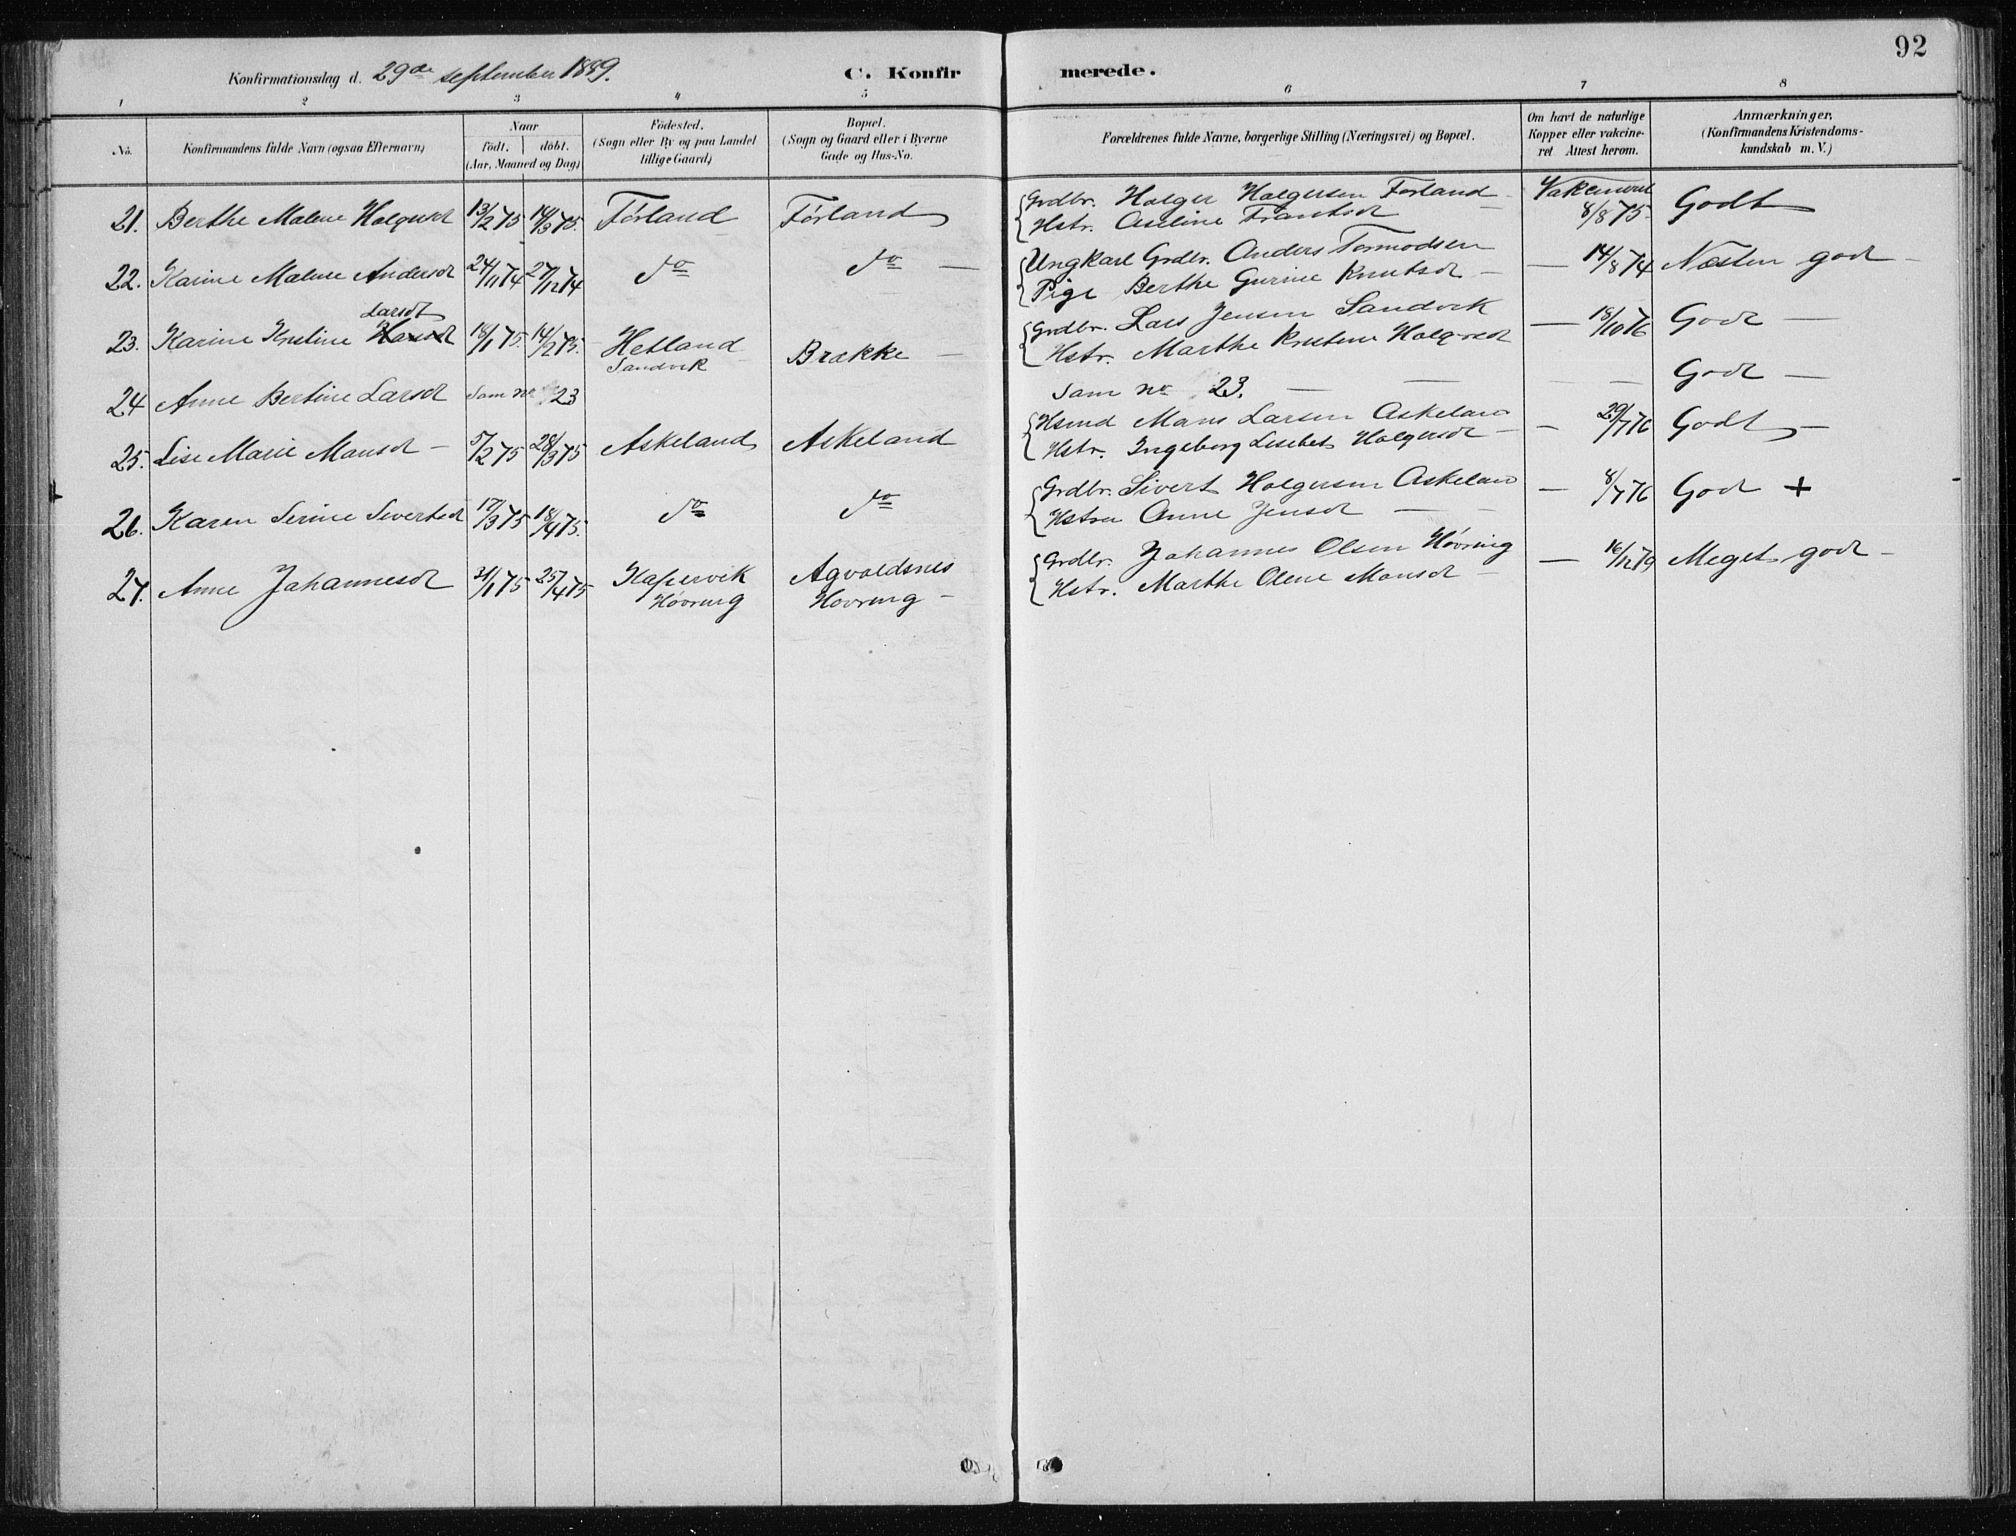 92
Konfirmationsdag d. 29de september 1889.
C. Konfirmerede.
1 2 3 4 5 6 7 8
No.
Konfirmandens fulde Navn (ogsaa Efternavn)
Naar
født. døbt.
(Aar, Maaned og Dag)
Fødested.
(Sogn eller By og paa Landet
tillige Gaard)
Bopæl.
(Sogn og Gaard eller i Byerne
Gade og Hus-No.
Forældrenes fulde Navne, borgerlige Stilling (Næringsvei) og Bopæl.
Om havt de naturlige
Kopper eller vakcine-
ret Attest herom.
Anmærkninger,
(Konfirmandens Kristendoms-
kundskab m. V.)
21. Berthe Malene Holgersd 13/2 75 14/3 75. Førland Førland
Grdbr. Holger Holgersen Førland
Hstr. Aseline Frantsd
Vakcineret
8/8 75 Godt
22. Karine Malene Andersd 24/11 74 27/12 74 do do —
Ungkarl Grdbr. Anders Tormodsen
Pige Berthe Gurine Knutsd —
— 14/8 74 Næsten god —
Larsdt
23. Karine Kristine 18/1 75. 14/2 75. Hetland
Sandvik
Brakke —
Grdbr. Lars Jensen Sandvik
Hstr. Marthe Kristene Holgersd
— 18/10 76 God —
24 Anne Bertine Larsd Som no 23
Som no 23. — — — — God —
25. Lise Marie Mansd — 5/2 75 28/3 75 Askeland Askeland
Hsmd Mans Larsen Askeland
Hstr. Ingeborg Lisebet Holgersd —
— 29/7 76 Godt —
26. Karen Serine Sivertsd 17/3 75 18/4 75. do do
Grdbr. Sivert Holgersen Askeland
Hstru Anne Jensd — —
— 8/7 76 God +
27. Anne Johannesd 31/1 75 25/4 75 Kopervik
Høvring
Agvaldsnes
Hovring —
Grdbr. Johannes Olsen Høvring
Hstr. Marthe Olene Monsd —
— 16/12 79 Meget god —